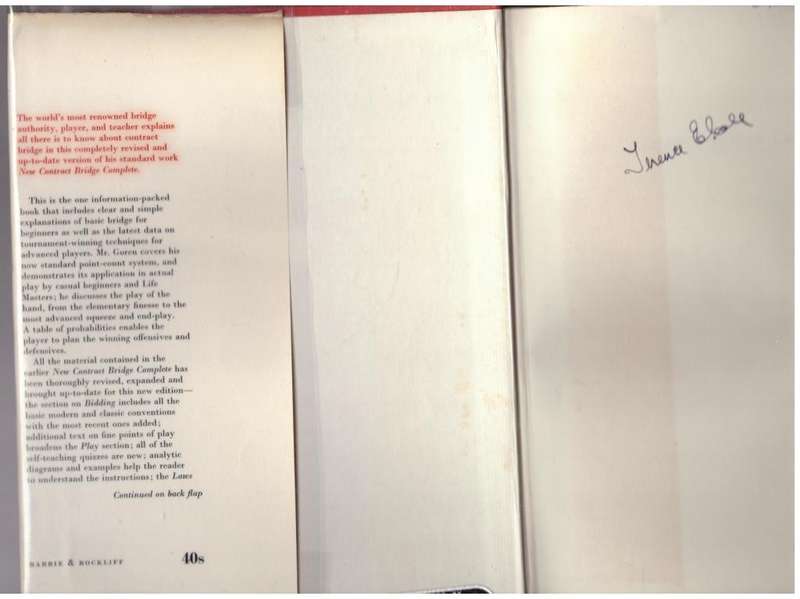 The world's most renowned bridge
authority, player, and teacher explains
all there is to know about contract
bridge in this completely revised and
up-to-date version of his standard work
New Contract Bridge Complete.
This is the one information-packed
book that includes clear and simple
explanations of basic bridge for
beginners as well as the latest data on
tournament-winning techniques for
advanced players. Mr. Goren covers his
now standard point-count system, and
demonstrates its application in actual
play by casual beginners and Life
Masters; he discusses the play of the
hand, from the elementary finesse to the
most advanced squeeze and end-play.
A table of probabilities enables the
player to plan the winning offensives and
defensives.
All the material contained in the
earlier New Contract Bridge Complete has
been thoroughly revised, expanded and
brought up-to-date for this new edition—
the section on Bidding includes all the
basic modern and classic conventions
with the most recent ones added;
additional text on fine points of play
broadens the Play section; all of the
self-teaching quizzes are new; analytic
diagrams and examples help the reader
to understand the instructions; the Laws
Continued on back flap
BARRIE & ROCKLIFF 40s
Terence